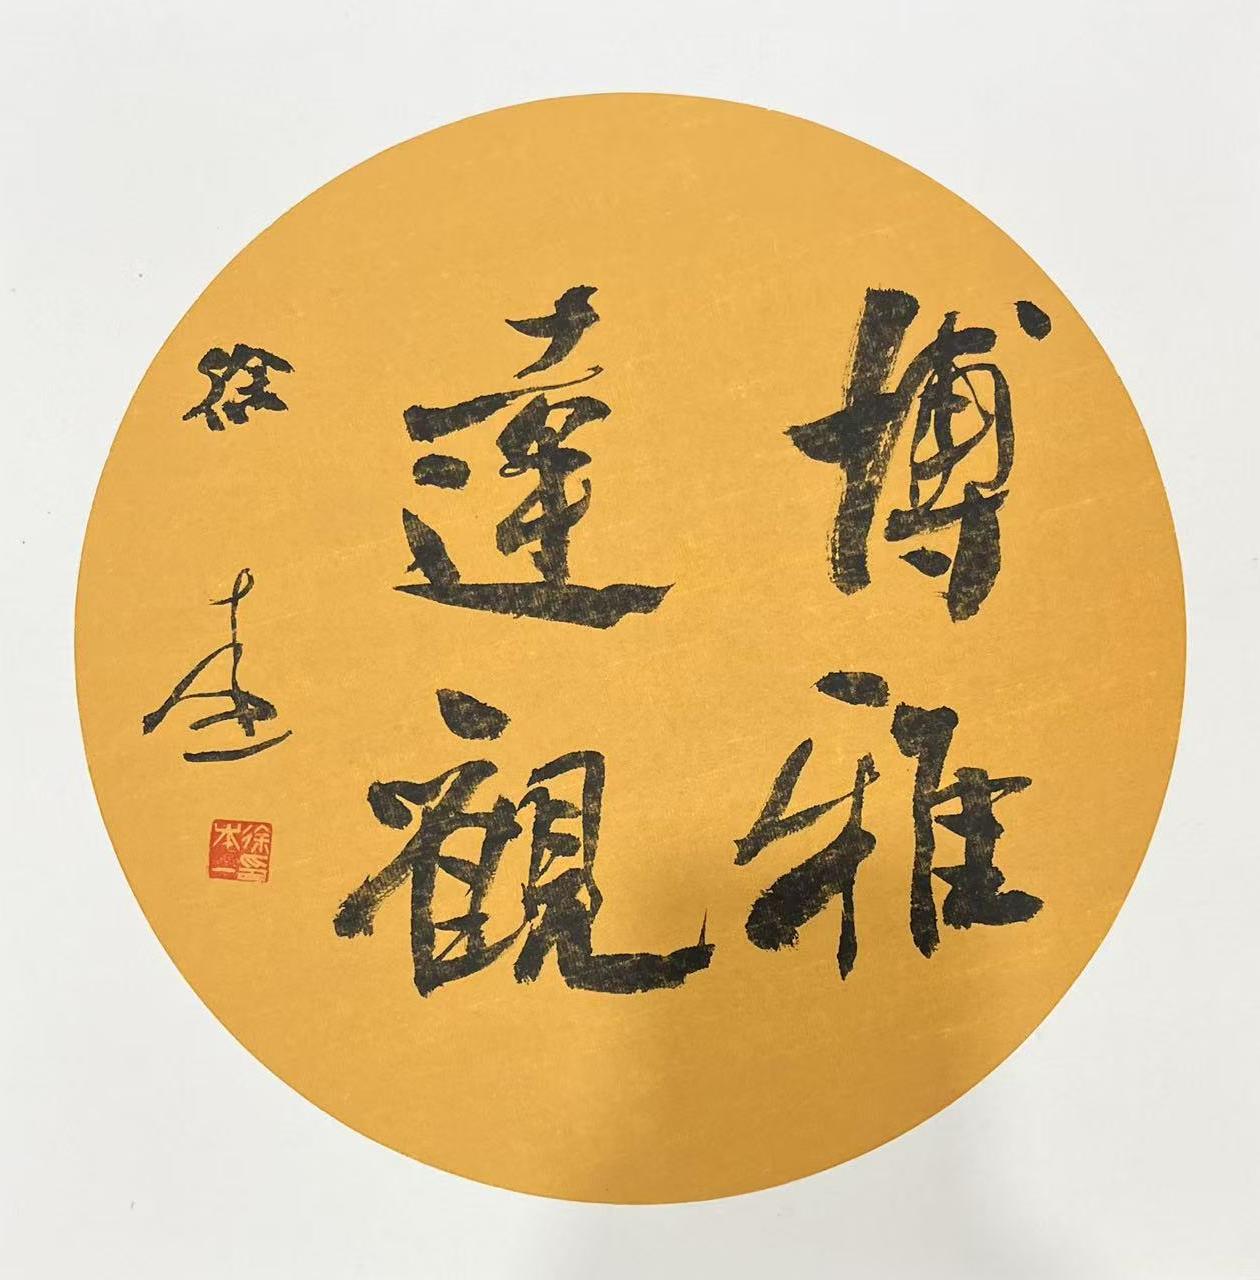 博雅
達觀
徐本一
徐印
本一